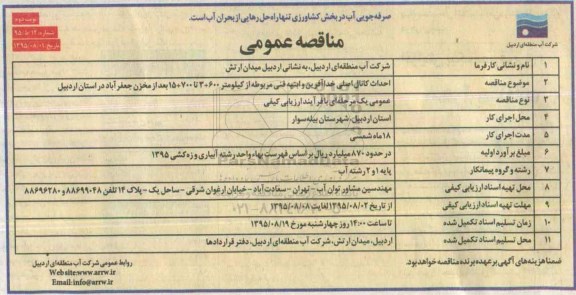 صرفه‌جویی آب در بخش کشاورزی تنها راه حل رهایی از بحران آب است.
نوبت دوم
شماره: ۹۵،۵،۱۴
تاریخ ۱۳۹۵/۰۸/۰۱
مناقصه عمومی
شرکت آب منطقه‌ای اردبیل
۱ نام و نشانی کارفرما شرکت آب منطقه‌ای اردبیل، به نشانی اردبیل میدان ارتش
۲ موضوع مناقصه احداث کانال اصلی خداآفرین و ابنیه فنی مربوطه از کیلومتر ۶۰۰+۳ تا ۷۰۰+۱۵ بعد از مخزن جعفرآباد در استان اردبیل
۳ نوع مناقصه عمومی یک مرحله‌ای با فرآیند ارزیابی کیفی
۴ محل اجرای کار استان اردبیل، شهرستان بیله‌سوار
۵ مدت اجرای کار ۱۸ ماه شمسی
۶ مبلغ برآورد اولیه در حدود ۸۷۰ میلیارد ریال بر اساس فهرست بهاء واحد رشته آبیاری و زه‌کشی ۱۳۹۵
۷ رشته و گروه پیمانکار پایه ۱ و ۲ رشته آب
۸ محل تهیه اسناد ارزیابی کیفی مهندسین مشاور توان آب - تهران - سعادت آباد - خیابان ارغوان شرقی - ساحل یک - پلاک ۱۴ تلفن ۸۸۶۹۹۰۴۸ و ۸۸۶۹۶۲۸۰ - ۰۲۱
۹ مهلت تهیه اسناد ارزیابی کیفی از تاریخ ۱۳۹۵/۰۸/۰۲ لغایت ۱۳۹۵/۰۸/۰۸
۱۰ زمان تسلیم اسناد تکمیل شده تا ساعت ۱۴:۰۰ روز چهارشنبه مورخ ۱۳۹۵/۰۸/۱۹
۱۱ محل تسلیم اسناد تکمیل شده اردبیل، میدان ارتش، شرکت آب منطقه‌ای اردبیل، دفتر قراردادها
ضمنا هزینه‌های آگهی بر عهده برنده مناقصه خواهد بود.
روابط عمومی شرکت آب منطقه‌ای اردبیل
Web site:www.arrw.ir
Email:info@arrw.ir